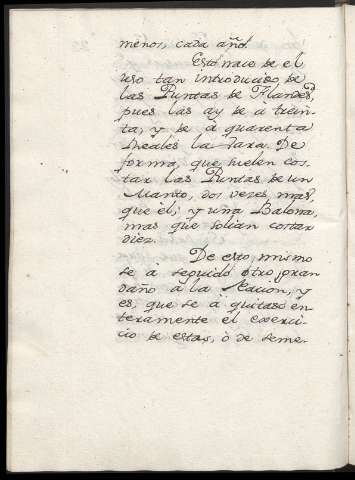 menos, cada año.
Esto nace de el
uso tan introducido de
las Puntas de Flandes,
pues las ay de á trein-
ta, y de á quarenta
Reales la Vara. De
forma, que suelen cos-
tar las Puntas de un
Manto, dos vezes mas,
que èl; y una Balona,
mas que solian costar
diez.
De esto mismo
se á seguido otro gran
daño á la Nacion, y
es, que se á quitado en-
teramente el exerci-
cio de estas, ò de seme-